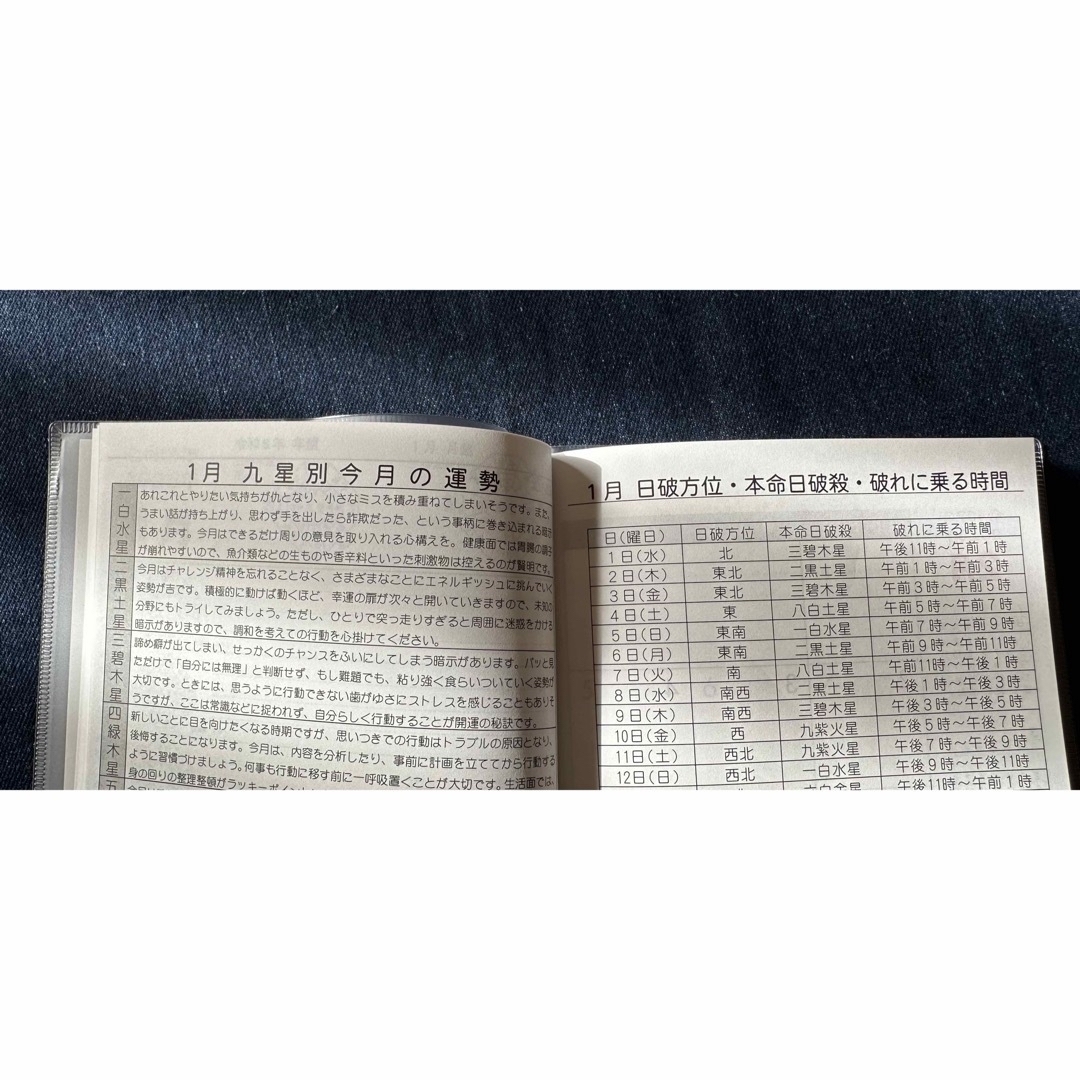 1月 九星別今月の運勢
一白水星
あれこれとやりたい気持ちが仇となり、小さなミスを積み重ねてしまいそうです。また、
うまい話が持ち上がり、思わず手を出したら詐欺だった、という事柄に巻き込まれる暗示
もあります。今月はできるだけ周りの意見を取り入れる心構えを。健康面では胃腸の調子
が崩れやすいので、魚介類などの生ものや香辛料といった刺激物は控えるのが賢明です。
二黒土星
今月はチャレンジ精神を忘れることなく、さまざまなことにエネルギッシュに挑んでいく
姿勢が吉です。積極的に動けば動くほど、幸運の扉が次々と開いていきますので、未知の
分野にもトライしてみましょう。ただし、ひとりで突っ走りすぎると周囲に迷惑をかける
暗示がありますので、調和を考えての行動を心掛けてください。
三碧木星
諦め癖が出てしまい、せっかくのチャンスをふいにしてしまう暗示があります。パッと見
ただけで「自分には無理」と判断せず、もし難題でも、粘り強く食らいついていく姿勢が
大切です。ときには、思うように行動できない歯がゆさにストレスを感じることもありそ
うですが、ここは常識などに捉われず、自分らしく行動することが開運の秘訣です。
四緑木星
新しいことに目を向けたくなる時期ですが、思いつきでの行動はトラブルの原因となり、
後悔することになります。今月は、内容を分析したり、事前に計画を立ててから行動する
ように習慣づけましょう。何事も行動に移す前に一呼吸置くことが大切です。生活面では、
身の回りの整理整頓がラッキーポイント
五
1月 日破方位・本命日破殺・破れに乗る時間
日(曜日) 日破方位 本命日破殺 破れに乗る時間
1日(水) 北 三碧木星 午後11時〜午前1時
2日(木) 東北 二黒土星 午前1時〜午前3時
3日(金) 東北 三碧木星 午前3時〜午前5時
4日(土) 東 八白土星 午前5時〜午前7時
5日(日) 東南 一白水星 午前7時〜午前9時
6日(月) 東南 二黒土星 午前9時〜午前11時
7日(火) 南 八白土星 午前11時〜午後1時
8日(水) 南西 二黒土星 午後1時〜午後3時
9日(木) 南西 三碧木星 午後3時〜午後5時
10日(金) 西 九紫火星 午後5時〜午後7時
11日(土) 西北 九紫火星 午後7時〜午後9時
12日(日) 西北 一白水星 午後9時〜午後11時
六白金星 午後11時〜午前1時